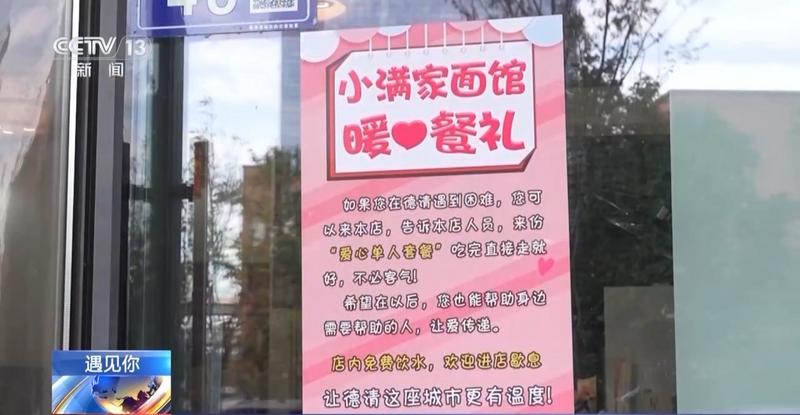 CCTV 13
新闻
小满家面馆
暖❤餐礼
如果您在德清遇到困难，您可
以来本店，告诉本店人员，来份
“爱心单人套餐”吃完直接走就
好，不必客气！
希望在以后，您也能帮助身边
需要帮助的人，让爱传递。
店内免费饮水，欢迎进店歇息
让德清这座城市更有温度！
遇见你